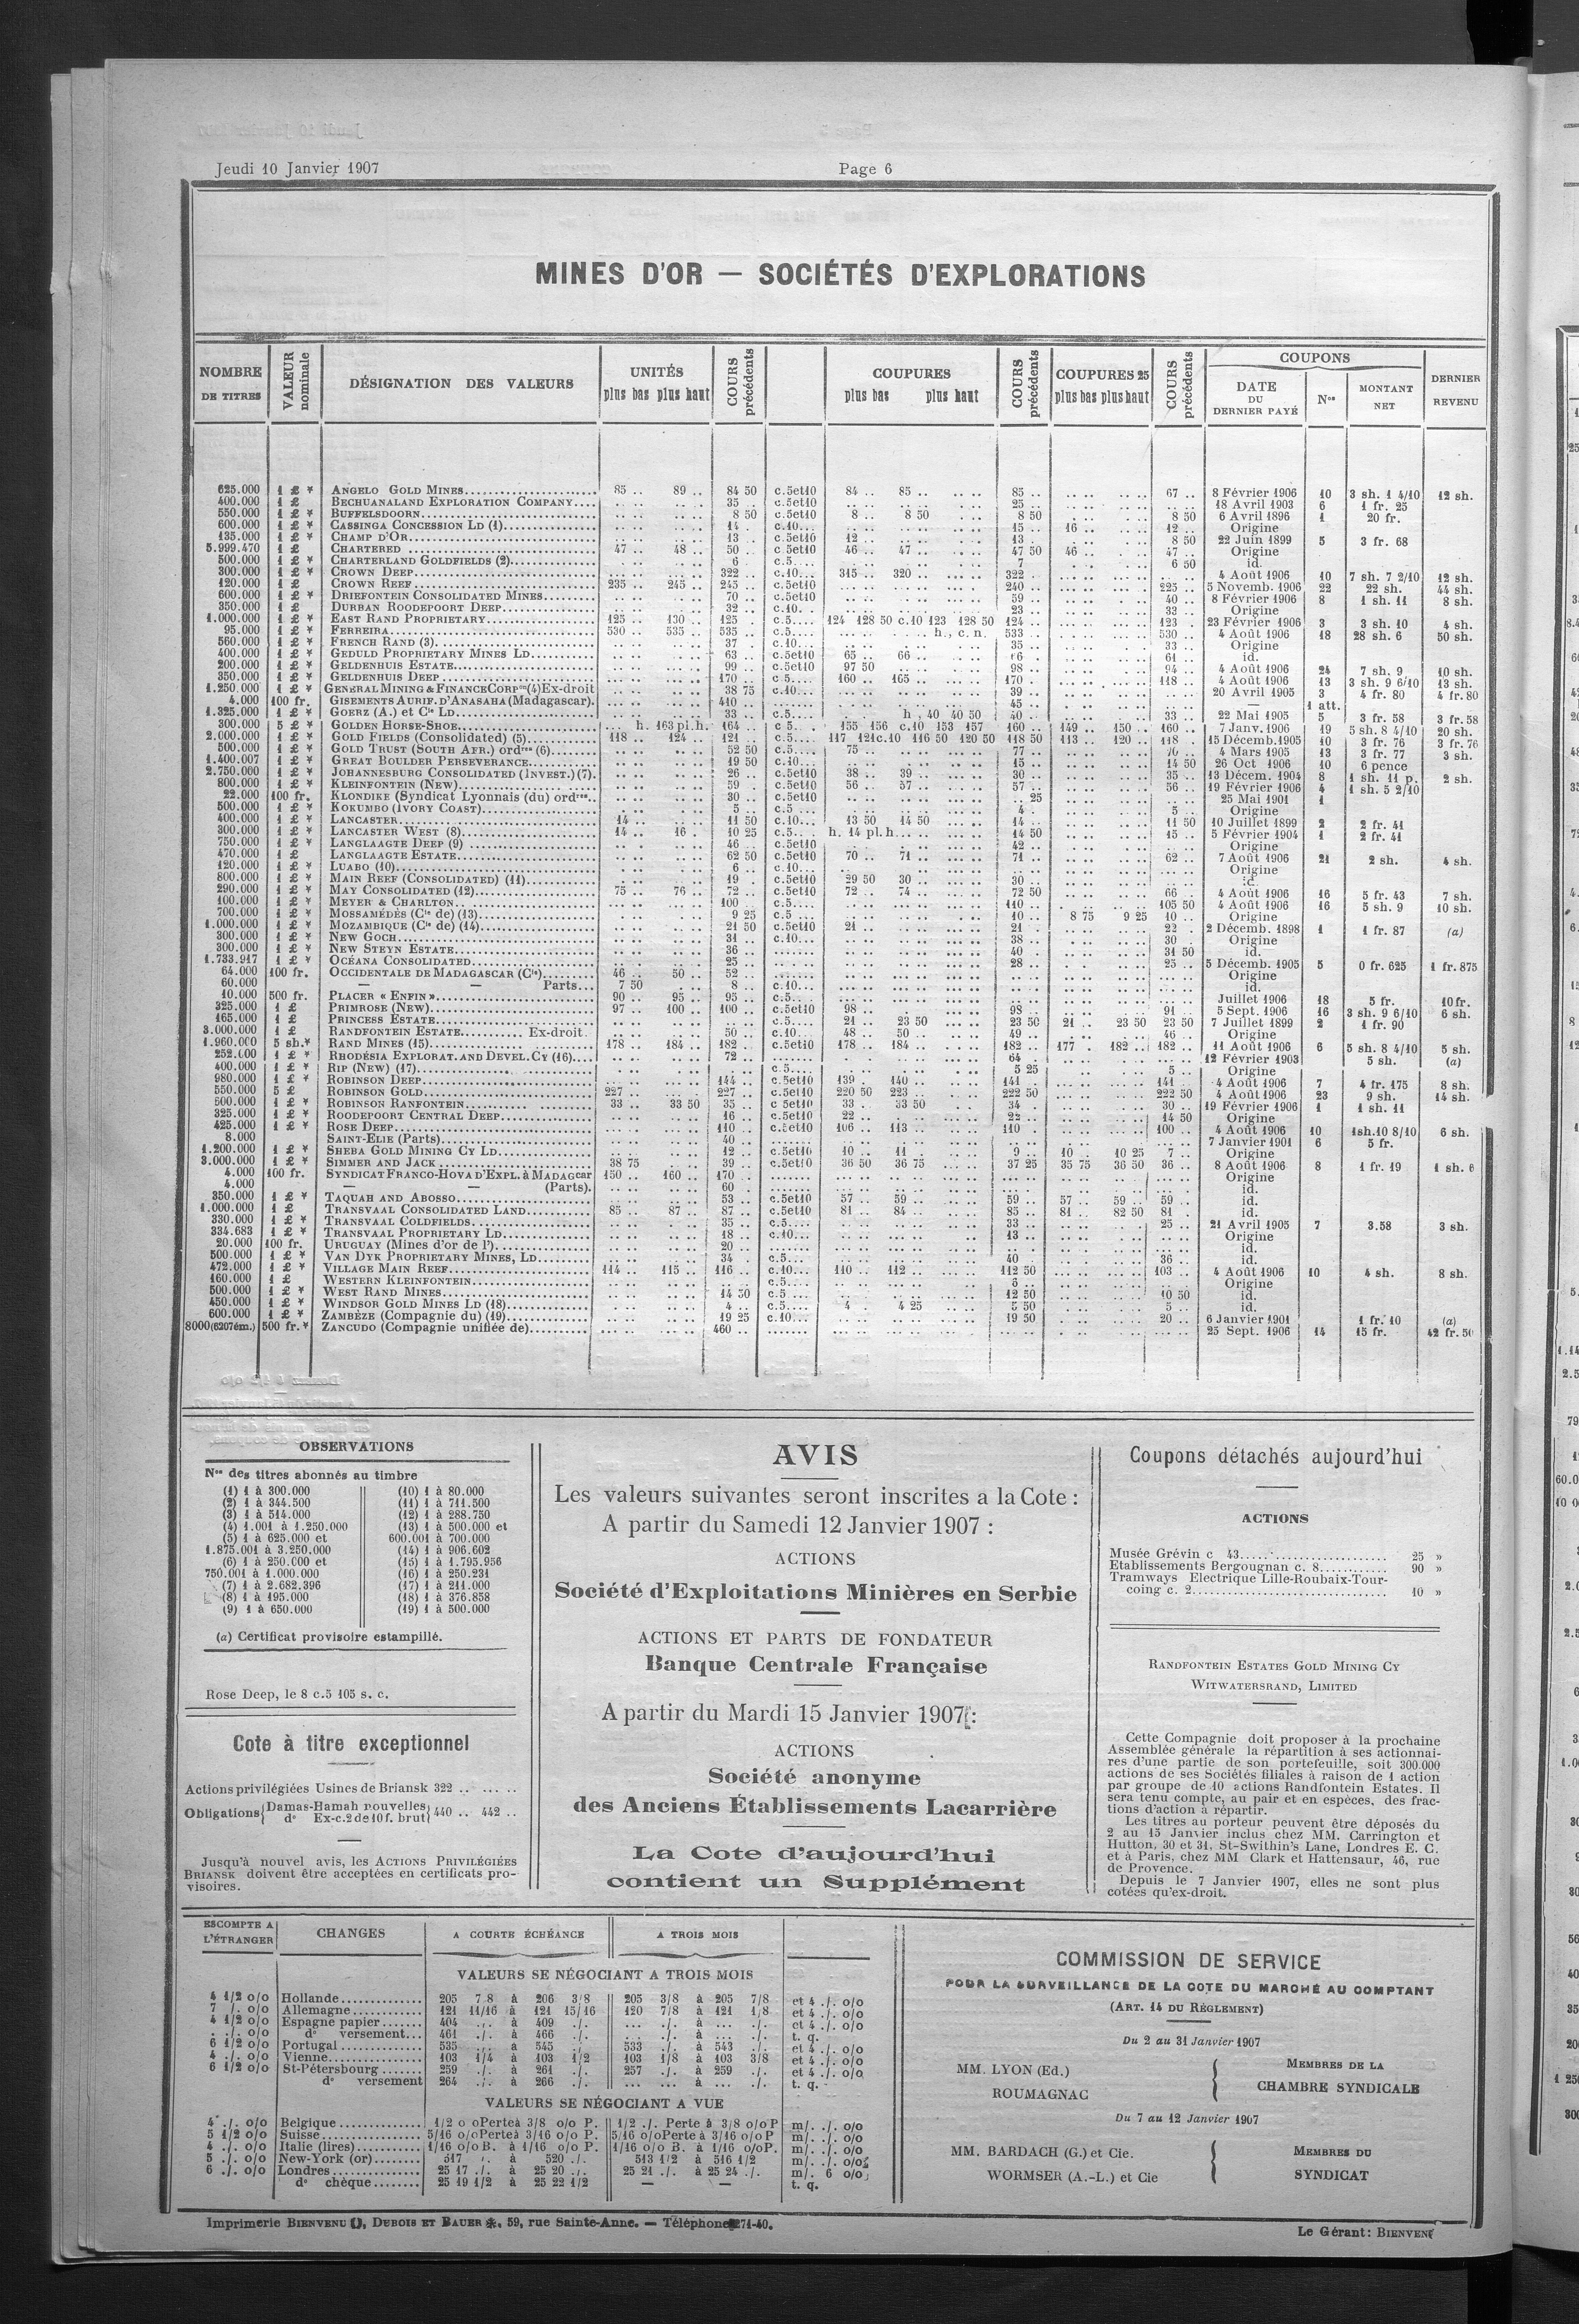 Jeudi 10 Janvier 1907
Page 6
MINES D'OR — SOCIÉTÉS D'EXPLORATIONS
NOMBRE DE TITRES | VALEUR nominale | DÉSIGNATION DES VALEURS | UNITÉS plus bas plus haut | COURS précédents | COUPURES plus bas plus haut | COURS précédents | COUPURES 25 plus bas plus haut | COURS précédents | COUPONS DATE DU DERNIER PAYÉ | Nos | MONTANT NET | DERNIER REVENU
625.000 1 £ * ANGELO GOLD MINES 85 .. 89 .. 84 50 c.5et10 84 .. 85 .. 85 .. 67 .. 8 Février 1906 10 3 sh. 1 4/10 12 sh.
400.000 1 £ BECHUANALAND EXPLORATION COMPANY 35 .. c.5et10 25 .. 18 Avril 1903 6 1 fr. 25
550.000 1 £ * BUFFELSDOORN 8 50 c.5et10 8 .. 8 50 8 50 8 50 6 Avril 1896 1 20 fr.
600.000 1 £ * CASSINGA CONCESSION LD (1) 14 .. c.10... 15 .. 16 .. 12 .. Origine
135.000 1 £ * CHAMP D'OR 13 .. c.5et10 12 .. 13 .. 8 50 22 Juin 1899 5 3 fr. 68
5.999.470 1 £ CHARTERED 47 .. 48 .. 50 .. c.5et10 46 .. 47 .. 47 50 46 .. 47 .. Origine
500.000 1 £ * CHARTERLAND GOLDFIELDS (2) 6 c.5.... 7 6 50 id.
300.000 1 £ * CROWN DEEP 322 .. c.10... 315 .. 320 .. 322 .. 4 Août 1906 10 7 sh. 7 2/10 12 sh.
120.000 1 £ CROWN REEF 235 .. 245 .. 245 .. c.5et10 240 .. 225 .. 5 Novemb. 1906 22 22 sh. 44 sh.
600.000 1 £ * DRIEFONTEIN CONSOLIDATED MINES 70 .. c.5et10 59 .. 40 .. 8 Février 1906 8 1 sh. 11 8 sh.
350.000 1 £ DURBAN ROODEPOORT DEEP 32 .. c.10. 23 .. 33 .. Origine
1.000.000 1 £ * EAST RAND PROPRIETARY 125 .. 130 .. 125 c.5.... 124 128 50 c.10 123 128 50 124 .. 123 .. 23 Février 1906 3 3 sh. 10 4 sh.
95.000 1 £ * FERREIRA 530 .. 535 .. 535 .. c.5.... h., c. n. 533 530 .. 4 Août 1906 18 28 sh. 6 50 sh.
560.000 1 £ * FRENCH RAND (3) 37 . c.10... 35 .. 33 .. Origine
400.000 1 £ * GEDULD PROPRIETARY MINES LD 63 .. c.5et10 65 .. 66 .. 61 .. id.
200.000 1 £ * GELDENHUIS ESTATE 99 .. c.5et10 97 50 98 .. 94 .. 4 Août 1906 24 7 sh. 9 10 sh.
350.000 1 £ * GELDENHUIS DEEP 170 .. c.5.... 160 .. 165 .. 170 . 118 .. 4 Août 1906 13 3 sh. 9 6/10 13 sh.
1.250.000 1 £ * GENERAL MINING & FINANCE CORPon (4) Ex-droit 38 75 c.10... 39 .. 20 Avril 1905 3 4 fr. 80 4 fr. 80
4.000 100 fr. GISEMENTS AURIF. D'ANASAHA (Madagascar). 410 45 .. — 1 att.
1.325.000 1 £ * GOERZ (A.) et Cie LD 33 .. c.5.... h , 40 40 50 40 .. 33 .. 22 Mai 1905 5 3 fr. 58 3 fr. 58
300.000 5 £ * GOLDEN HORSE-SHOE h. 163 pl. h. 164 .. c 5.... 155 156 c.10 153 157 160 .. 149 .. 150 .. 160 .. 7 Janv. 1906 19 5 sh. 8 4/10 20 sh.
2.000.000 1 £ * GOLD FIELDS (Consolidated) (5) 118 .. 124 .. 121 .. c.5.... 117 121 c.10 116 50 120 50 118 50 113 .. 120 .. 118 .. 15 Décemb. 1905 10 3 fr. 76 3 fr. 76
500.000 1 £ * GOLD TRUST (SOUTH AFR.) ordres (6) 52 50 c.5.... 75 .. 77 .. 4 Mars 1905 13 3 fr. 77 3 sh.
1.400.007 1 £ * GREAT BOULDER PERSEVERANCE 19 50 c.10... 15 .. 14 50 26 Oct 1906 10 6 pence
2.750.000 1 £ * JOHANNESBURG CONSOLIDATED (INVEST.) (7). 26 .. c.5et10 38 .. 39 .. 30 .. 35 .. 13 Décem. 1904 8 1 sh. 11 p. 2 sh.
800.000 1 £ * KLEINFONTEIN (NEW) 59 c.5et10 56 .. 57 .. 57 .. 56 .. 19 Février 1906 4 1 sh. 5 2/10
22.000 100 fr. KLONDIKE (Syndicat Lyonnais (du) ordres 30 .. c.5et10 .. 25 25 Mai 1901 1
500.000 1 £ * KOKUMBO (IVORY COAST) 5 .. c.5.... 4 . 5 .. Origine
400.000 1 £ * LANCASTER 14 .. 11 50 c.10... 13 50 14 50 14 .. 11 50 10 Juillet 1899 2 2 fr. 41
300.000 1 £ * LANCASTER WEST (8) 14 .. 16 . 10 25 c.5.. . h. 14 pl. h. 14 50 15 .. 5 Février 1904 1 2 fr. 41
750.000 1 £ * LANGLAAGTE DEEP (9) 46 .. c.5et10 42 .. Origine
470.000 1 £ LANGLAAGTE ESTATE 62 50 c.5et10 70 .. 71 .. 71 .. 62 .. 7 Août 1906 21 2 sh. 4 sh.
120.000 1 £ * LUABO (10) 6 .. c.10... Origine
800.000 1 £ * MAIN REEF (CONSOLIDATED) (11) 19 . c.5et10 29 50 30 .. 30 .. id.
290.000 1 £ * MAY CONSOLIDATED (12) 75 .. 76 .. 72 .. c.5et10 72 .. 74 .. 72 50 66 .. 4 Août 1906 16 5 fr. 43 7 sh.
100.000 1 £ * MEYER & CHARLTON 100 c.5.... 110 .. 105 50 4 Août 1906 16 5 sh. 9 10 sh.
700.000 1 £ * MOSSAMÉDÈS (Cie de) (13) 9 25 c.5 ... 10 .. 8 75 9 25 10 .. Origine
1.000.000 1 £ * MOZAMBIQUE (Cie de) (14) 21 50 c.5et10 21 .. 21 .. 22 . 2 Décemb. 1898 1 1 fr. 87 (a)
300.000 1 £ * NEW GOCH 31 .. c.10... 38 .. 30 . Origine
300.000 1 £ * NEW STEYN ESTATE 36 .. 40 . 31 50 id.
1.733.917 1 £ * OCÉANA CONSOLIDATED 25 28 .. 25 .. 5 Décemb. 1905 5 0 fr. 625 1 fr. 875
64.000 100 fr. OCCIDENTALE DE MADAGASCAR (Cie) 46 .. 50 .. 52 .. Origine
60.000 — — Parts... 7 50 8 .. c.10... id.
10.000 500 fr. PLACER « ENFIN » 90 .. 95 .. 95 .. c.5... Juillet 1906 18 5 fr. 10 fr.
325.000 1 £ PRIMROSE (NEW) 97 .. 100 .. 100 .. c.5et10 98 .. 98 .. 91 .. 5 Sept. 1906 16 3 sh. 9 6/10 6 sh.
165.000 1 £ PRINCESS ESTATE c.5.... 21 .. 23 50 23 50 21 .. 23 50 23 50 7 Juillet 1899 2 1 fr. 90
3.000.000 1 £ RANDFONTEIN ESTATE Ex-droit 50 .. c.10... 48 .. 50 .. 49 .. 46 .. Origine
1.960.000 5 sh.* RAND MINES (15) 178 .. 184 .. 182 . c.5et10 178 .. 184 .. 182 .. 177 . 182 .. 182 .. 11 Août 1906 6 5 sh. 8 4/10 5 sh.
252.000 1 £ * RHODÉSIA EXPLORAT. AND DEVEL. CY (16) 72 .. 64 12 Février 1903 5 sh. (a)
400.000 1 £ * RIP (NEW) (17) c.5.... 5 25 5 .. Origine
980.000 1 £ * ROBINSON DEEP 144 .. c.5et10 139 . 140 .. 141 .. 141 .. 4 Août 1906 7 4 fr. 175 8 sh.
550.000 5 £ ROBINSON GOLD 227 .. 227 .. c.5et10 220 50 223 .. 222 50 222 50 4 Août 1906 23 9 sh. 14 sh.
600.000 1 £ * ROBINSON RANFONTEIN 33 .. 33 50 35 .. c 5et10 33 . 33 50 34 . 30 .. 19 Février 1906 1 1 sh. 11
325.000 1 £ * ROODEPOORT CENTRAL DEEP 16 .. c.5et10 22 .. 22 .. 14 50 Origine
425.000 1 £ * ROSE DEEP 110 .. c.5et10 106 .. 113 .. 110 . 100 .. 4 Août 1906 10 1sh.10 8/10 6 sh.
8.000 SAINT-ELIE (Parts) 40 .. 7 Janvier 1901 6 5 fr.
1.200.000 1 £ * SHEBA GOLD MINING CY LD 12 .. c.5et10 10 .. 11 . 9 .. 10 . 10 25 7 .. Origine
3.000.000 1 £ * SIMMER AND JACK 38 75 39 .. c.5et10 36 50 36 75 37 25 35 75 36 50 36 .. 8 Août 1906 8 1 fr. 19 1 sh. 6
4.000 100 fr. SYNDICAT FRANCO-HOVA D'EXPL. à MADAGcar 150 .. 160 .. 170 .. Origine
4.000 — — (Parts). 60 . id.
350.000 1 £ * TAQUAH AND ABOSSO 53 .. c.5et10 57 .. 59 .. 59 .. 57 .. 59 .. 59 .. id.
1.000.000 1 £ TRANSVAAL CONSOLIDATED LAND 85 .. 87 .. 87 .. c.5et10 81 .. 84 .. 85 .. 81 .. 82 50 81 .. id.
330.000 1 £ * TRANSVAAL COLDFIELDS 35 .. c.5.... 33 .. 25 .. 21 Avril 1905 7 3.58 3 sh.
334.683 1 £ * TRANSVAAL PROPRIETARY LD 18 .. c.10... 13 .. Origine
20.000 100 fr. URUGUAY (Mines d'or de l') 20 .. id.
500.000 1 £ * VAN DYK PROPRIETARY MINES, LD 34 . c.5... 40 .. 36 .. id.
472.000 1 £ * VILLAGE MAIN REEF 114 .. 115 .. 116 .. c.10... 110 .. 112 .. 112 50 103 .. 4 Août 1906 10 4 sh. 8 sh.
160.000 1 £ WESTERN KLEINFONTEIN c.5.... Origine
500.000 1 £ * WEST RAND MINES 14 50 c.5 ... 12 50 10 50 id.
450.000 1 £ * WINDSOR GOLD MINES LD (18) 4 .. c.5.... 4 . 4 25 5 50 5 .. id.
600.000 1 £ * ZAMBÈZE (Compagnie du) (19) 19 25 c.10... 19 50 20 .. 6 Janvier 1901 1 fr. 10 (a)
8000 (6207 ém.) 500 fr.* ZANCUDO (Compagnie unifiée de) 460 .. 25 Sept. 1906 14 15 fr. 42 fr. 50
OBSERVATIONS
Nos des titres abonnés au timbre
(1) 1 à 300.000
(2) 1 à 344.500
(3) 1 à 514.000
(4) 1.001 à 1.250.000
(5) 1 à 625.000 et
1.875.001 à 3.250.000
(6) 1 à 250.000 et
750.001 à 1.000.000
(7) 1 à 2.682.396
(8) 1 à 195.000
(9) 1 à 650.000
(10) 1 à 80.000
(11) 1 à 711.500
(12) 1 à 288.750
(13) 1 à 500.000 et
600.001 à 700.000
(14) 1 à 906.602
(15) 1 à 1.795.956
(16) 1 à 250.231
(17) 1 à 211.000
(18) 1 à 376.858
(19) 1 à 500.000
(a) Certificat provisoire estampillé.
Rose Deep, le 8 c.5 105 s. c.
Cote à titre exceptionnel
Actions privilégiées Usines de Briansk 322 .. ... ..
Obligations { Damas-Hamah nouvelles
do Ex-c. 2 de 10 f. brut } 440 .. 442 ..
Jusqu'à nouvel avis, les ACTIONS PRIVILÉGIÉES
BRIANSK doivent être acceptées en certificats pro-
visoires.
AVIS
Les valeurs suivantes seront inscrites a la Cote :
A partir du Samedi 12 Janvier 1907 :
ACTIONS
Société d'Exploitations Minières en Serbie
ACTIONS ET PARTS DE FONDATEUR
Banque Centrale Française
A partir du Mardi 15 Janvier 1907 :
ACTIONS
Société anonyme
des Anciens Établissements Lacarrière
La Cote d'aujourd'hui
contient un Supplément
Coupons détachés aujourd'hui
ACTIONS
Musée Grévin c 43 25 »
Etablissements Bergougnan c. 8 90 »
Tramways Electrique Lille-Roubaix-Tour-
coing c. 2 10 »
RANDFONTEIN ESTATES GOLD MINING CY
WITWATERSRAND, LIMITED
Cette Compagnie doit proposer à la prochaine
Assemblée générale la répartition à ses actionnai-
res d'une partie de son portefeuille, soit 300.000
actions de ses Sociétés filiales à raison de 1 action
par groupe de 10 actions Randfontein Estates. Il
sera tenu compte, au pair et en espèces, des frac-
tions d'action à répartir.
Les titres au porteur peuvent être déposés du
2 au 15 Janvier inclus chez MM. Carrington et
Hutton, 30 et 31, St-Swithin's Lane, Londres E. C.
et à Paris, chez MM Clark et Hattensaur, 46, rue
de Provence.
Depuis le 7 Janvier 1907, elles ne sont plus
cotées qu'ex-droit.
ESCOMPTE A L'ÉTRANGER | CHANGES | A COURTE ÉCHÉANCE | A TROIS MOIS
VALEURS SE NÉGOCIANT A TROIS MOIS
4 1/2 o/o Hollande 205 7 8 à 206 3/8 205 3/8 à 205 7/8 et 4 ./. o/o
7 /. o/o Allemagne 121 11/16 à 121 15/16 120 7/8 à 121 1/8 et 4 ./. o/o
4 1/2 o/o Espagne papier 404 ./. à 409 ./. ... ./. à ... ./. et 4 ./. o/o
. ./. o/o do versement... 461 ./. à 466 ./. ... ./. à ... ./. t. q.
6 1/2 o/o Portugal 535 ./. à 545 ./. 533 ./. à 543 ./. et 4 ./. o/o
4 ./. o/o Vienne 103 1/4 à 103 1/2 103 1/8 à 103 3/8 et 4 ./. o/o
6 1/2 o/o St-Pétersbourg 259 ./. à 261 ./. 257 ./. à 259 ./. et 4 ./. o/o
do versement 264 ./. à 266 ./. ... ... à ... ./. t. q.
VALEURS SE NÉGOCIANT A VUE
4 ./. o/o Belgique 1/2 o oPerte à 3/8 o/o P. 1/2 ./. Perte à 3/8 o/o P m/. ./. o/o
5 1/2 o/o Suisse 5/16 o/o Perte à 3/16 o/o P. 5/16 o/o Perte à 3/16 o/o P m/. ./. o/o
4 ./. o/o Italie (lires) 1/16 o/o B. à 1/16 o/o P. 1/16 o/o B. à 1/16 o/o P. m/. ./. o/o
5 ./. o/o New-York (or) 517 /. à 520 ./. 513 1/2 à 516 1/2 m/. ./. o/o
6 ./. o/o Londres 25 17 ./. à 25 20 ./. 25 21 ./. à 25 24 ./. m/. 6 o/o
do chèque 25 19 1/2 à 25 22 1/2 — — t. q.
COMMISSION DE SERVICE
POUR LA SURVEILLANCE DE LA COTE DU MARCHÉ AU COMPTANT
(ART. 14 DU RÉGLEMENT)
Du 2 au 31 Janvier 1907
MM. LYON (Ed.)
ROUMAGNAC
MEMBRES DE LA
CHAMBRE SYNDICALE
Du 7 au 12 Janvier 1907
MM. BARDACH (G.) et Cie.
WORMSER (A.-L.) et Cie
MEMBRES DU
SYNDICAT
Imprimerie BIENVENU, DUBOIS ET BAUER, 59, rue Sainte-Anne. — Téléphone 271-40.
Le Gérant : BIENVENU